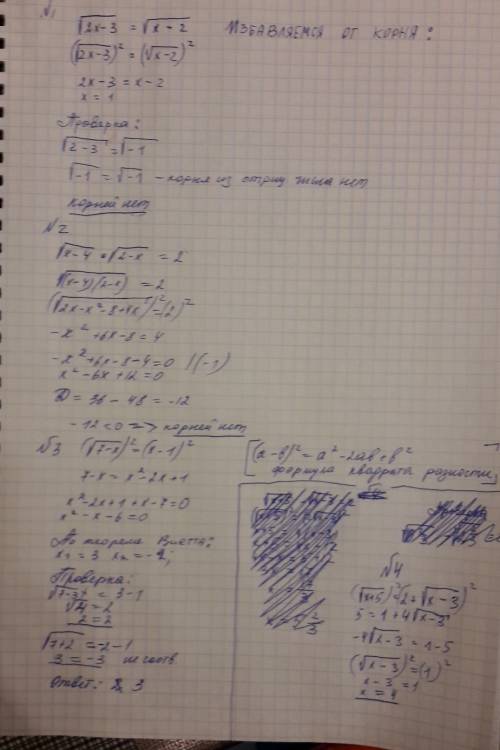 №1
√2x-3 = √x-2 Избавляемся от корня:
(√2x-3)² = (√x-2)²
2x-3 = x-2
x = 1
Проверка:
√2-3 = √-1
√-1 = √-1 - корня из отриц числа нет
корней нет
№2
√x-4 • √2-x = 2
√(x-4)(2-x) = 2
(√2x-x²-8+4x)² = (2)²
-x²+6x-8=4
-x²+6x-8-4=0 /(-1)
x²-6x+12=0
D = 36-48 = -12
-12<0 => корней нет
№3 (√7-x)² = (x-1)²
7-x = x²-2x+1
x²-2x+1+x-7=0
x²-x-6=0
По теореме Виетта:
x₁ = 3 x₂ = -2;
Проверка:
√7-3 = 3-1
√4 = 2
2=2
√7+2 = -2-1
3 = -3 не соотв
Ответ: 3
(a-b)² = a²-2ab+b²
формула квадрата разности
№4
(√x+5)² = (2+√x-3)²
5=1+4√x-3
-4√x-3 = 1-5
(√x-3)² = (1)²
x-3=1
x=4